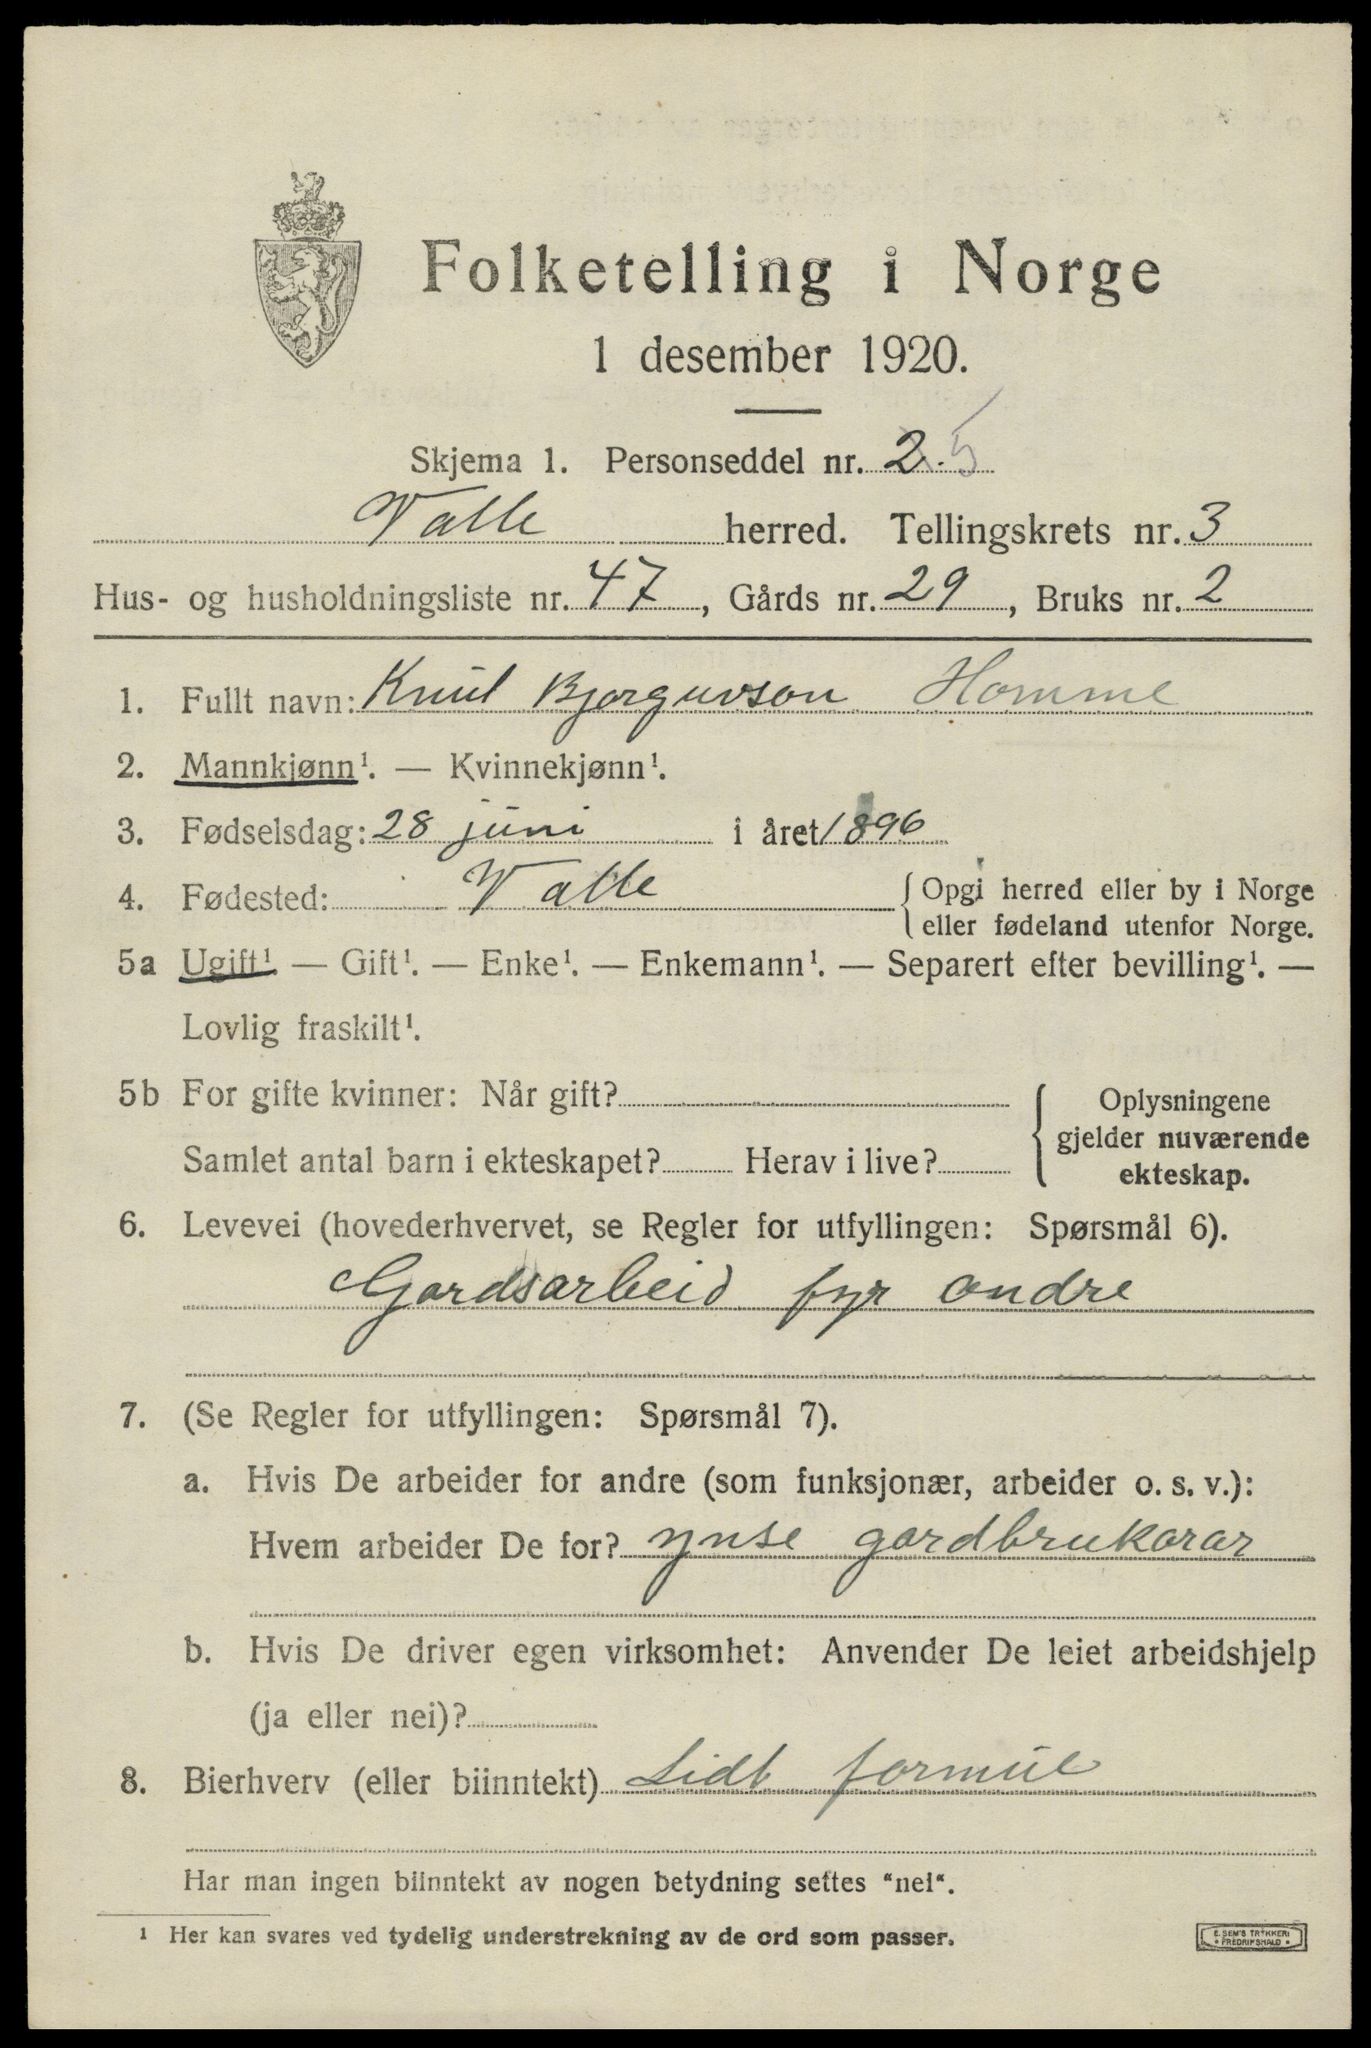 Folketelling i Norge
1 desember 1920.
Skjema 1. Personseddel nr. 2. 5
Valle herred. Tellingskrets nr. 3
Hus- og husholdningsliste nr. 47, Gårds nr. 29, Bruks nr. 2
1. Fullt navn: Knut Bjorguvson Homme
2. Mannkjønn¹. — Kvinnekjønn¹.
3. Fødselsdag: 28 juni i året 1896
4. Fødested: Valle { Opgi herred eller by i Norge
eller fødeland utenfor Norge.
5a Ugift¹. — Gift¹. — Enke¹. — Enkemann¹. — Separert efter bevilling¹. —
Lovlig fraskilt¹.
5b For gifte kvinner: Når gift? { Oplysningene
gjelder nuværende
Samlet antal barn i ekteskapet? Herav i live?
ekteskap.
6. Levevei (hovederhvervet, se Regler for utfyllingen: Spørsmål 6).
Gardsarbeid fyr andre
7. (Se Regler for utfyllingen: Spørsmål 7).
a. Hvis De arbeider for andre (som funksjonær, arbeider o. s. v.):
Hvem arbeider De for? ynse gardbrukarar
b. Hvis De driver egen virksomhet: Anvender De leiet arbeidshjelp
(ja eller nei)?
8. Bierhverv (eller biinntekt) Lidt formue
Har man ingen biinntekt av nogen betydning settes "nei".
1 Her kan svares ved tydelig understrekning av de ord som passer.
E. SEM'S TRYKKERI
FREDRIKSHALD